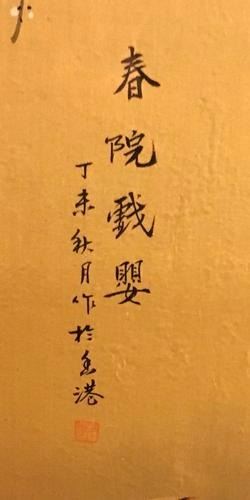 春院戲嬰
丁未秋月作於香港